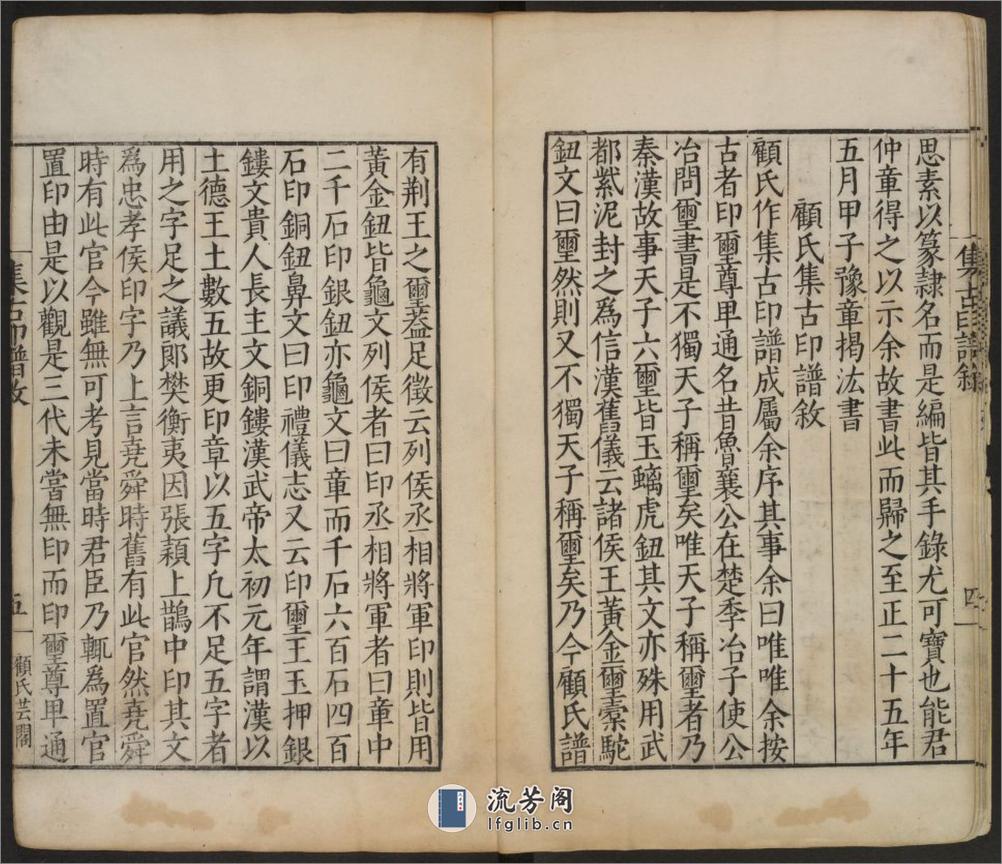 集古印譜敘
四
思素以篆隸名而是編皆其手錄尤可寶也能君
仲章得之以示余故書此而歸之至正二十五年
五月甲子豫章揭汯書
顧氏集古印譜敘
顧氏作集古印譜成屬余序其事余曰唯唯余按
古者印璽尊卑通名昔魯襄公在楚季冶子使公
冶問璽書是不獨天子稱璽矣唯天子稱璽者乃
秦漢故事天子六璽皆玉螭虎鈕其文亦殊用武
都紫泥封之為信漢舊儀云諸侯王黃金璽橐駝
鈕文曰璽然則又不獨天子稱璽矣乃今顧氏譜
有荊王之璽葢足徵云列侯丞相將軍印則皆用
黃金鈕皆龜文列侯者曰印丞相將軍者曰章中
二千石印銀鈕亦龜文曰章而千石六百石四百
石印銅鈕鼻文曰印禮儀志又云印璽王玉押銀
鏤文貴人長主文銅鏤漢武帝太初元年謂漢以
土德王土數五故更印章以五字凢不足五字者
用之字足之議郎樊衡夷因張顥上鵲中印其文
為忠孝侯印字乃上言堯舜時舊有此官然堯舜
時有此官今雖無可考見當時君臣乃輒為置官
置印由是以觀是三代未嘗無印而印璽尊卑通
集古印譜敘
五
顧氏芸閣
流芳阁
lfglib.cn